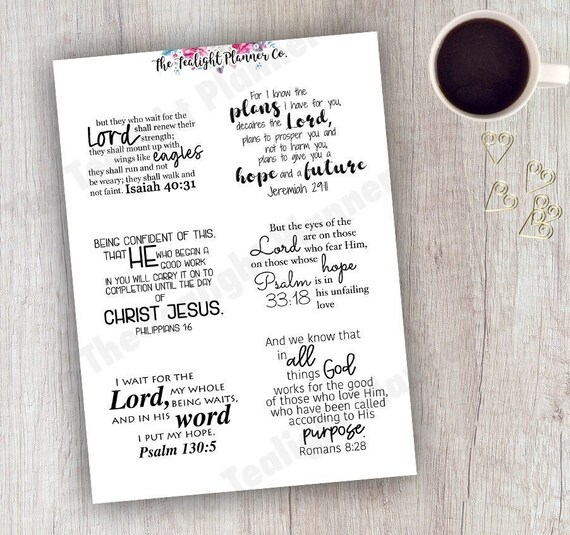 The Tealight Planner Co.
but they who wait for the
Lord shall renew their
strength;
they shall mount up with
wings like eagles
they shall run and not
be weary; they shall walk and
not faint. Isaiah 40:31
For I know the
plans I have for you,
decalres the Lord,
plans to prosper you and
not to harm you,
plans to give you a
hope and a future
Jeremiah 29:11
BEING CONFIDENT OF THIS,
THAT HE WHO BEGAN A
GOOD WORK
IN YOU WILL CARRY IT ON TO
COMPLETION UNTIL THE DAY
OF
CHRIST JESUS.
PHILIPPIANS 1:6
But the eyes of the
Lord are on those
who fear Him,
on those whose hope
Psalm is in
33:18 his unfailing
love
I WAIT FOR THE
Lord, MY WHOLE
BEING WAITS,
AND IN HIS word
I PUT MY HOPE.
Psalm 130:5
And we know that
in all
things God
works for the good
of those who love Him,
who have been called
according to His
purpose.
Romans 8:28